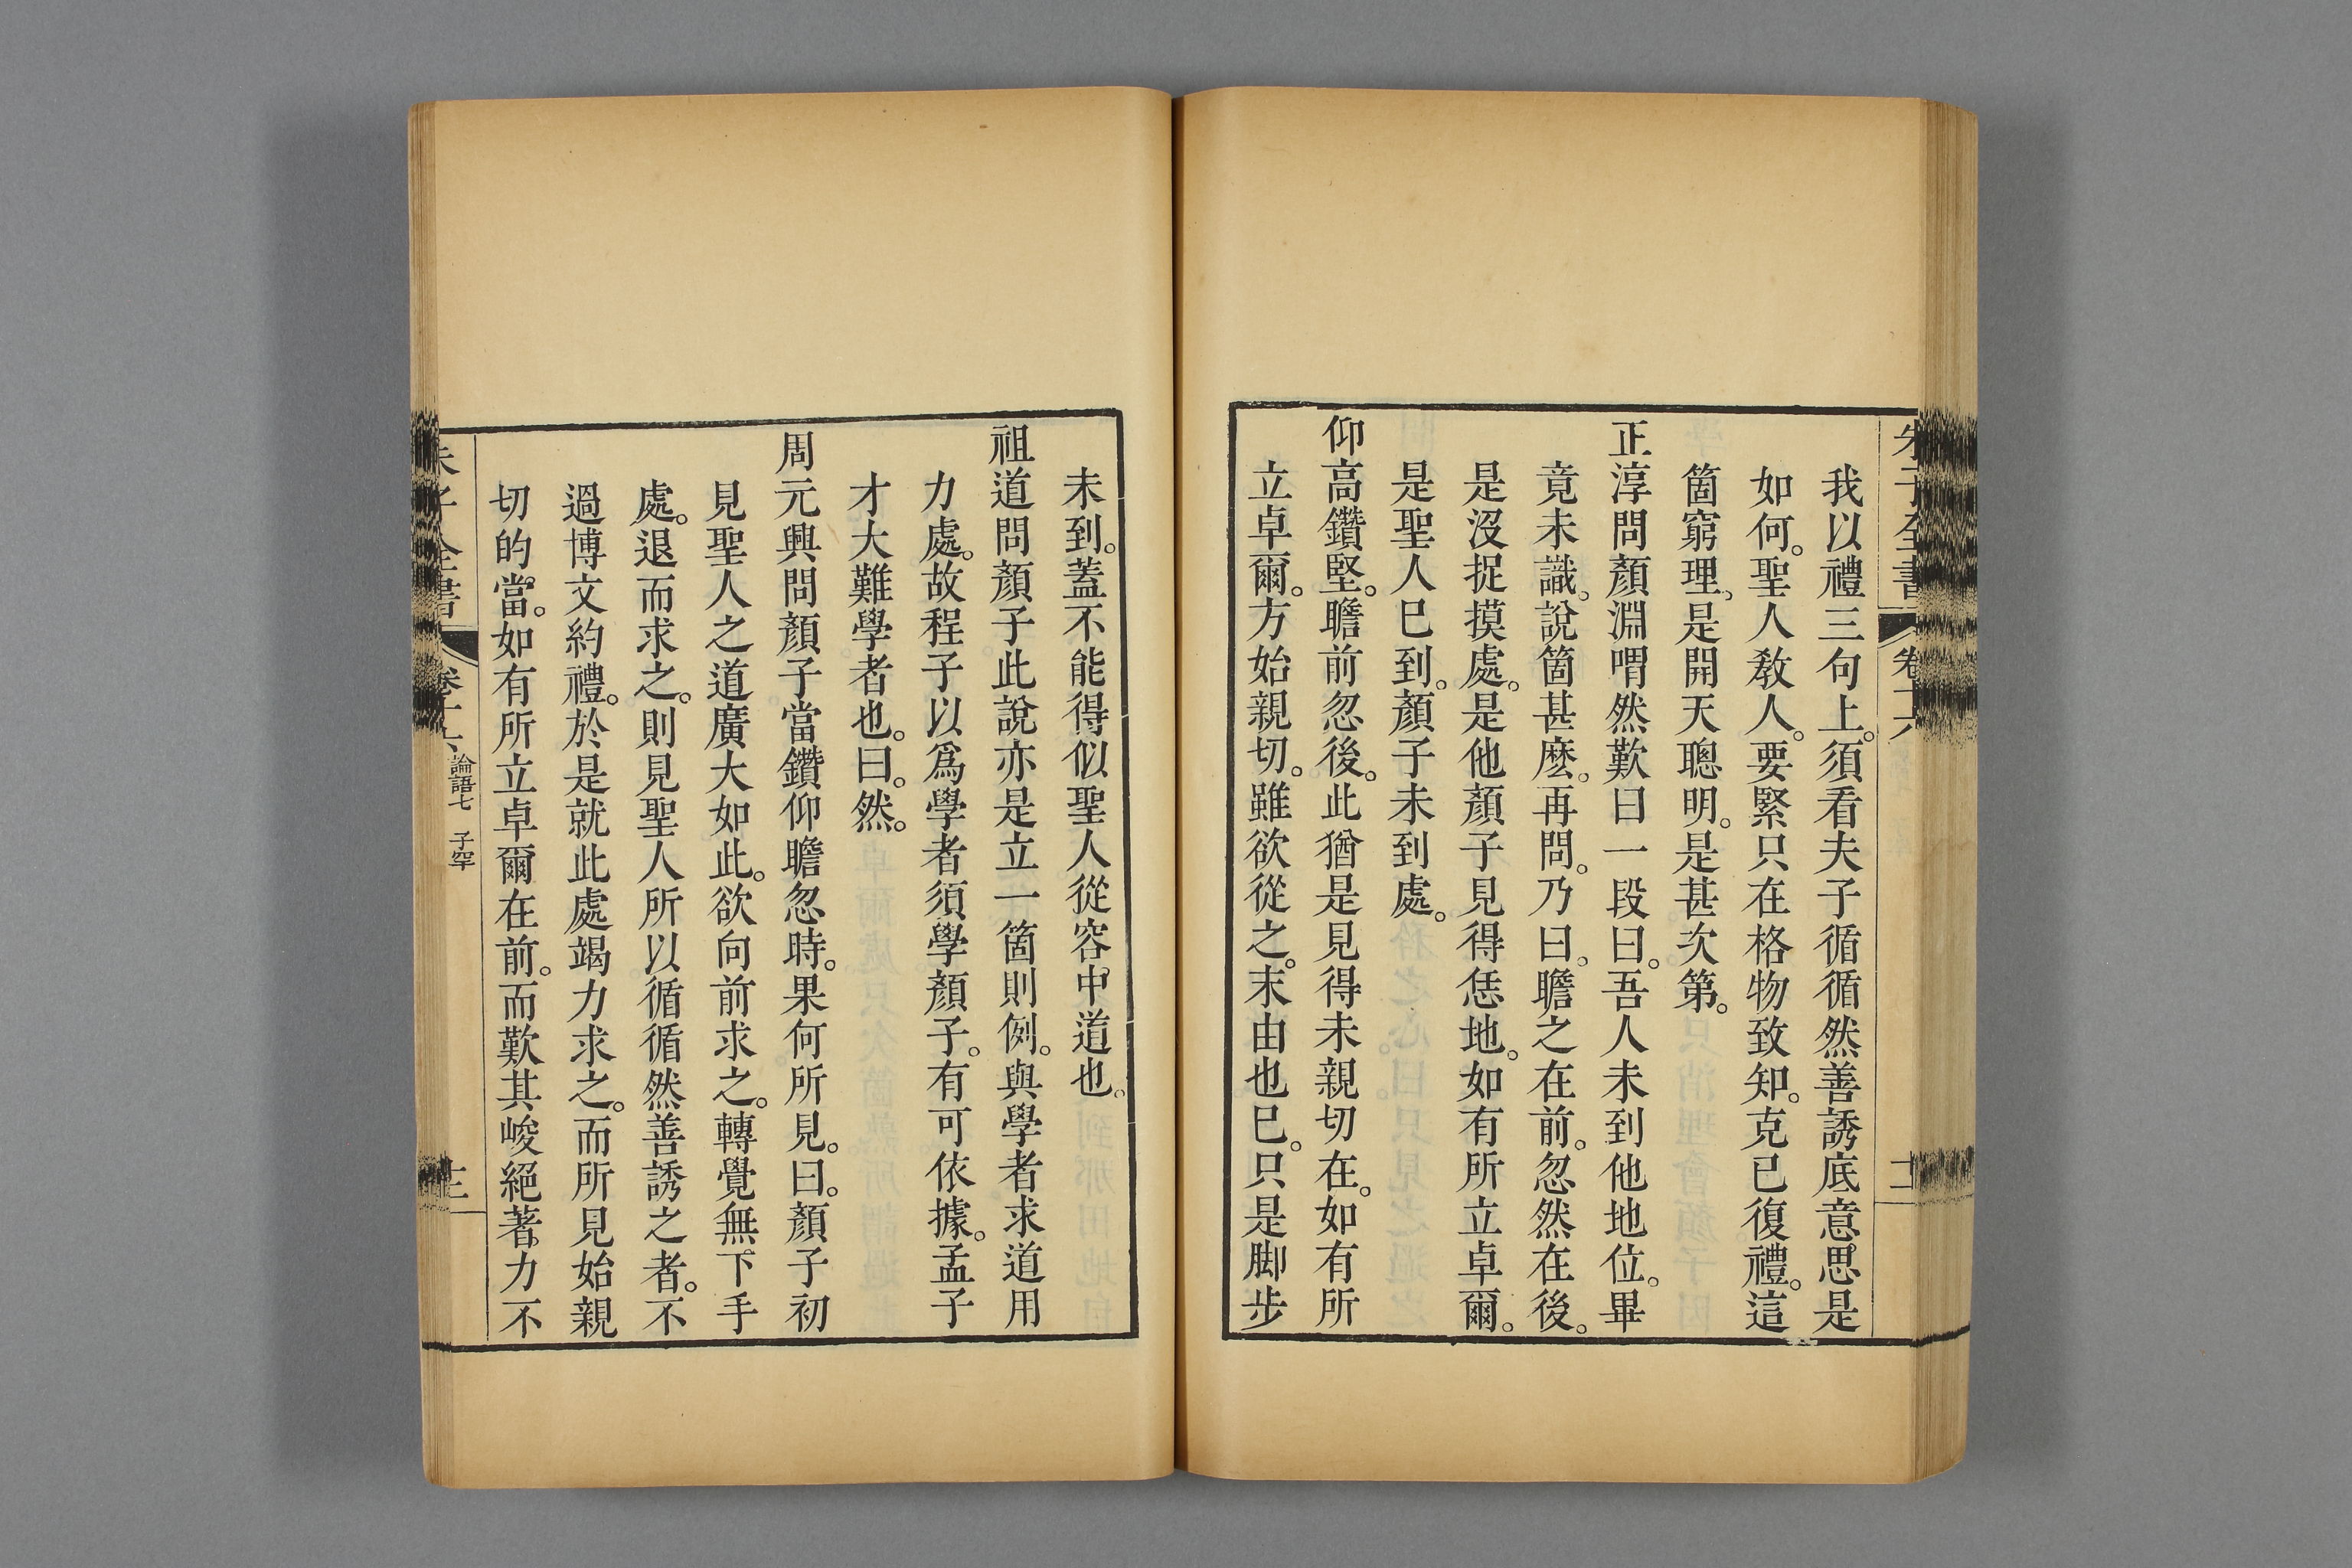 朱子全書 卷十六 十二
我以禮三句上。須看夫子循循然善誘底意思。是
如何。聖人敎人。要緊只在格物致知。克已復禮。這
箇窮理。是開天聰明。是甚次第。
正淳問顏淵喟然歎曰一段曰。吾人未到他地位。畢
竟未識。說箇甚麽。再問。乃曰。瞻之在前。忽然在後。
是沒捉摸處。是他顏子見得恁地。如有所立卓爾。
是聖人已到。顏子未到處。
仰高鑽堅。瞻前忽後。此猶是見得未親切在。如有所
立卓爾。方始親切。雖欲從之。末由也已。只是脚步
未到。蓋不能得似聖人從容中道也。
祖道問顏子此說亦是立一箇則例。與學者求道用
力處。故程子以爲學者須學顏子。有可依據。孟子
才大難學者也。曰。然。
周元興問顏子當鑽仰瞻忽時。果何所見。曰。顏子初
見聖人之道廣大如此。欲向前求之。轉覺無下手
處。退而求之。則見聖人所以循循然善誘之者。不
過博文約禮。於是就此處竭力求之。而所見始親
切的當。如有所立卓爾在前。而歎其峻絕著力不
朱子全書 卷十六 論語七 子罕 十三